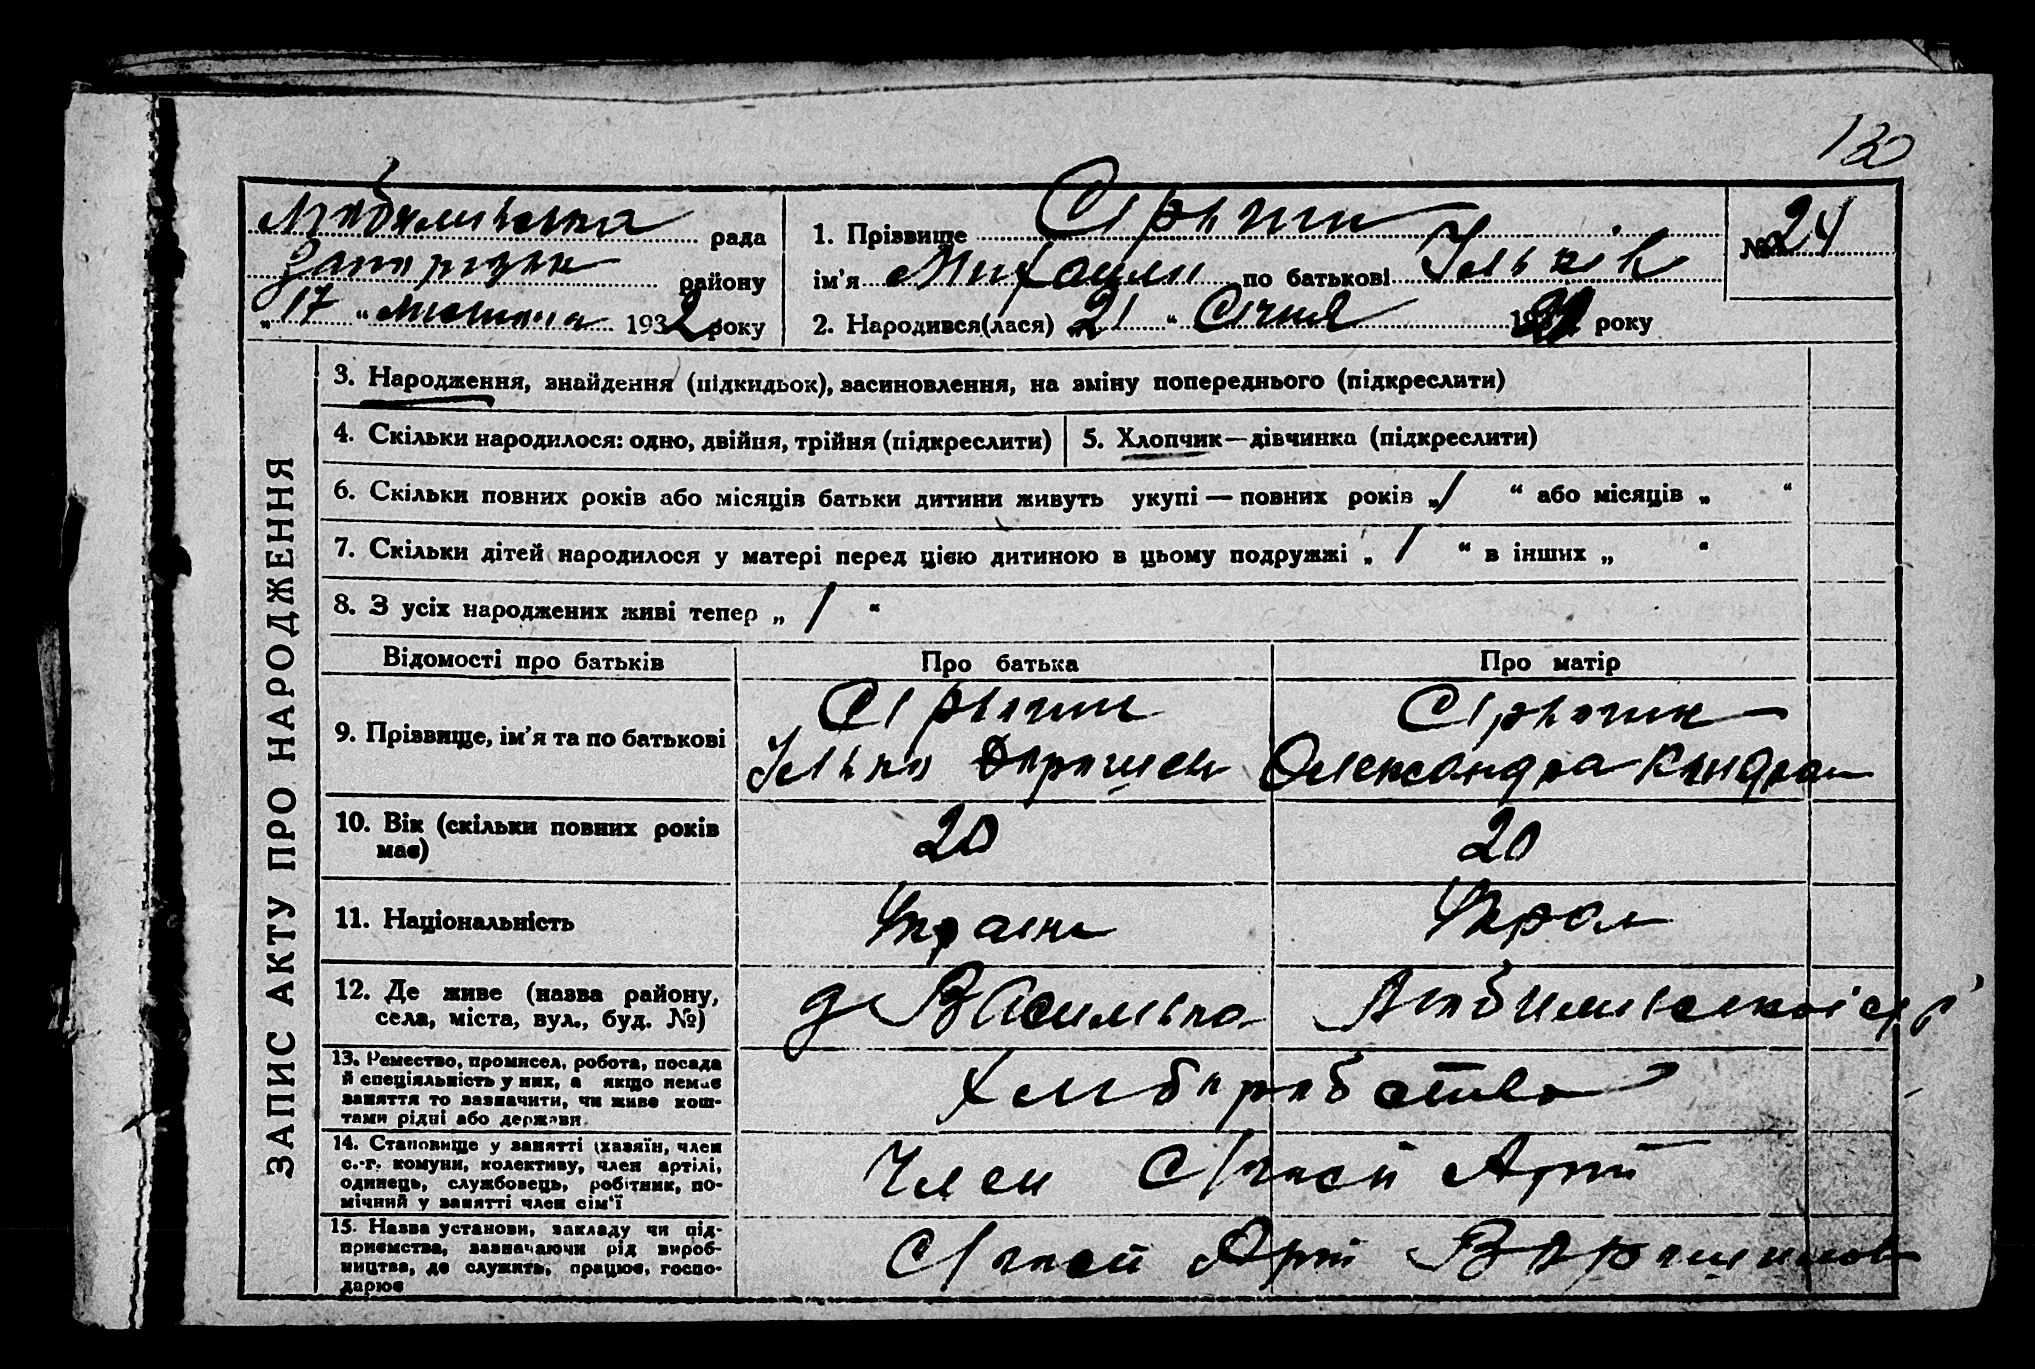 130
Любимівська рада
Запорізьк району
„17 “ Лютого 1932 року
1. Прізвище Сірьтин
ім'я Михайло по батькові Ількіів
2. Народився(лася) „21 “ Січня 193 року
№ 24
ЗАПИС АКТУ ПРО НАРОДЖЕННЯ
3. Народження, знайдення (підкидьок), засиновлення, на зміну попереднього (підкреслити)
4. Скільки народилося: одно, двійня, трійня (підкреслити)
5. Хлопчик—дівчинка (підкреслити)
6. Скільки повних років або місяців батьки дитини живуть укупі — повних років „1 “ або місяців „ “
7. Скільки дітей народилося у матері перед цією дитиною в цьому подружжі „ 1 “ в інших „ “
8. З усіх народжених живі тепер „ 1 “
Відомості про батьків
Про батька
Про матір
9. Прізвище, ім'я та по батькові
Ілько
Олександра Кіндрат
10. Вік (скільки повних років має)
20
20
11. Національність
Україн
Украї
12. Де живе (назва району, села, міста, вул., буд. №)
Любимівської с/р
13. Ремество, промисел, робота, посада
й спеціяльність у них, а якщо немає
заняття то зазначити, чи живе кош-
тами рідні або держави.
Хліборобство
14. Становище у занятті (хазяїн, член
с.-г. комуни, колективу, член артілі,
одинець, службовець, робітник, по-
мічний у занятті член сім'ї
Член С/госп Арт
15. Назва установи, закладу чи під-
приємства, зазначаючи рід вироб-
ництва, де служить, працює, госпо-
дарює
С/госп Арт Ворошилов